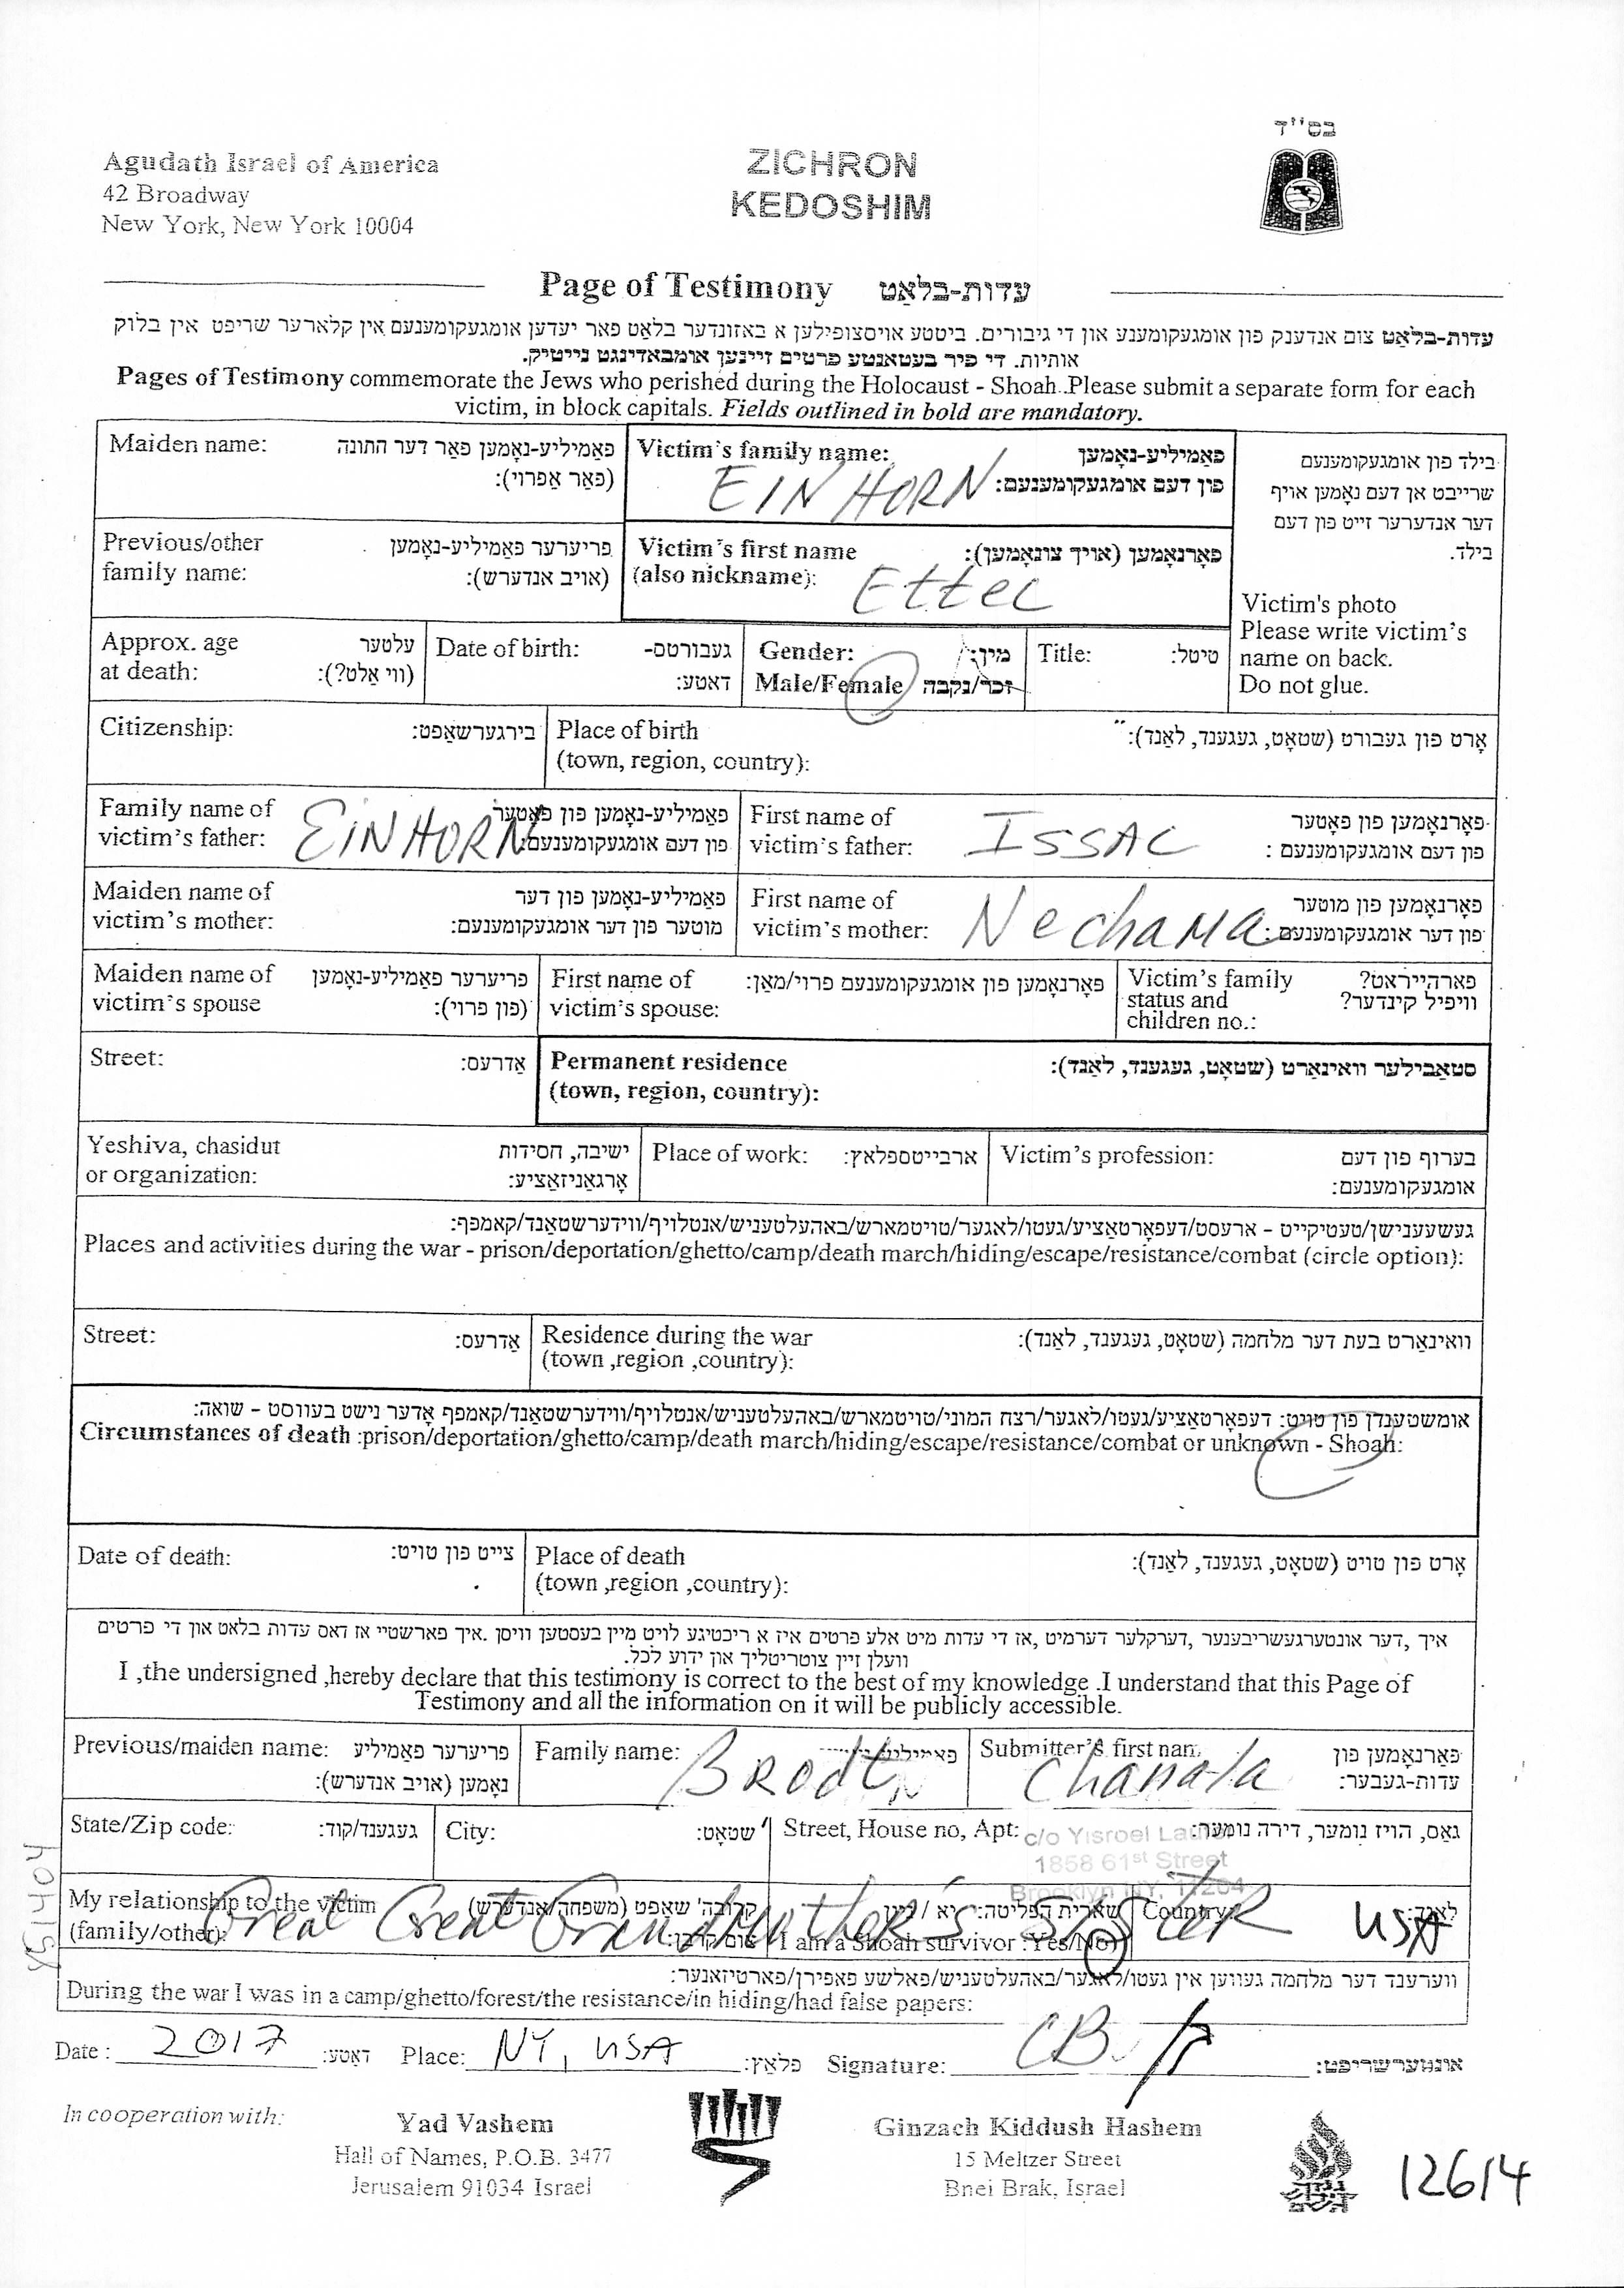 בס''ד
Agudath Israel of America
42 Broadway
New York, New York 10004
ZICHRON
KEDOSHIM
Page of Testimony עדות-בלאַט
עדות-בלאַט צום אנדענק פון אומגעקומענע און די גיבורים. ביטטע אויסצופילען א באזונדער בלאט פאר יעדען אומגעקומענעם אין קלארער שריפט אין בלוק
אותיות. די פיר בעטאנטע פרטים זיינען אומבאדינגט נייטיק.
Pages of Testimony commemorate the Jews who perished during the Holocaust - Shoah. Please submit a separate form for each
victim, in block capitals. Fields outlined in bold are mandatory.
Maiden name: פאַמיליע-נאָמען פאר דער חתונה
(פאַר אַפרוי):
Victim's family name: פאַמיליע-נאָמען
EINHORN פון דעם אומגעקומענעם:
בילד פון אומגעקומענעם
שרייבט אן דעם נאָמען אויף
דער אנדערער זייט פון דעם
בילד.
Previous/other פריערער פאַמיליע-נאָמען
family name: (אויב אנדערש):
Victim's first name פאָרנאָמען (אויך צונאָמען):
(also nickname): Ettel
Victim's photo
Please write victim's
name on back.
Do not glue.
Approx. age עלטער
at death: (ווי אַלט?):
Date of birth: געבורטס-
דאטע:
Gender: מין:
Male/Female זכר/נקבה
Title: טיטל:
Citizenship: בירגערשאַפט:
Place of birth אָרט פון געבורט (שטאָט, געגענד, לאַנד):
(town, region, country):
Family name of פאַמיליע-נאָמען פון פאָטער
victim's father: EINHORN פון דעם אומגעקומענעם:
First name of פאָרנאָמען פון פאָטער
victim's father: ISSAC פון דעם אומגעקומענעם :
Maiden name of פאַמיליע-נאָמען פון דער
victim's mother: מוטער פון דער אומגעקומענעם:
First name of פאָרנאָמען פון מוטער
victim's mother: Nechama פון דער אומגעקומענעם:
Maiden name of פריערער פאַמיליע-נאָמען
victim's spouse (פון פרוי):
First name of פאָרנאָמען פון אומגעקומענעם פרוי/מאַן:
victim's spouse:
Victim's family פארהייראט?
status and וויפיל קינדער?
children no.:
Street: אַדרעס:
Permanent residence סטאַבילער וואינאַרט (שטאָט, געגענד, לאַנד):
(town, region, country):
Yeshiva, chasidut ישיבה, חסידות
or organization: אָרגאַניזאַציע:
Place of work: ארבייטספלאץ:
Victim's profession: בערוף פון דעם
אומגעקומענעם:
געשעענישן/טעטיקייט - ארעסט/דעפאָרטאַציע/געטו/לאגער/טויטמארש/באהעלטעניש/אנטלויף/ווידערשטאַנד/קאמפף:
Places and activities during the war - prison/deportation/ghetto/camp/death march/hiding/escape/resistance/combat (circle option):
Street: אַדרעס:
Residence during the war וואינאַרט בעת דער מלחמה (שטאָט, געגענד, לאַנד):
(town ,region ,country):
אומשטענדן פון טויט: דעפאָרטאַציע/געטו/לאגער/רצח המוני/טויטמארש/באהעלטעניש/אנטלויף/ווידערשטאַנד/קאמפף אָדער נישט בעוווסט - שואה:
Circumstances of death :prison/deportation/ghetto/camp/death march/hiding/escape/resistance/combat or unknown - Shoah:
Date of death: צייט פון טויט:
Place of death אָרט פון טויט (שטאָט, געגענד, לאַנד):
(town ,region ,country):
איך ,דער אונטערגעשריבענער ,דערקלער דערמיט ,אז די עדות מיט אלע פרטים איז א ריכטיגע לויט מיין בעסטען וויסן .איך פארשטיי אז דאס עדות בלאט און די פרטים
וועלן זיין צוטריטליך און ידוע לכל.
I ,the undersigned ,hereby declare that this testimony is correct to the best of my knowledge .I understand that this Page of
Testimony and all the information on it will be publicly accessible.
Previous/maiden name: פריערער פאַמיליע
נאָמען (אויב אנדערש):
Family name: Brodt
Submitter's first nam פאָרנאָמען פון
Chanala עדות-געבער:
State/Zip code: געגענד/קוד:
City: שטאָט:
Street, House no, Apt: גאַס, הויז נומער, דירה נומער:
c/o Yisroel
1858 61st Street
Brooklyn NY, 11204
My relationship to the victim קרובה' שאפט (משפחה/אנדערש)
(family/other): Great Great Grandmother's Sister
שארית הפליטה: יא / ניין
I am a Shoah survivor :Yes/No
Country: USA לאַנד:
ווערענד דער מלחמה געווען אין געטו/לאגער/באהעלטעניש/פאלשע פאפירן/פארטיזאנער:
During the war I was in a camp/ghetto/forest/the resistance/in hiding/had false papers:
Date : 2017 דאַטע: Place: NY, USA פלאַץ: Signature: CB אונטערשריפט:
In cooperation with:
Yad Vashem
Hall of Names, P.O.B. 3477
Jerusalem 91034 Israel
Ginzach Kiddush Hashem
15 Meltzer Street
Bnei Brak, Israel
12614